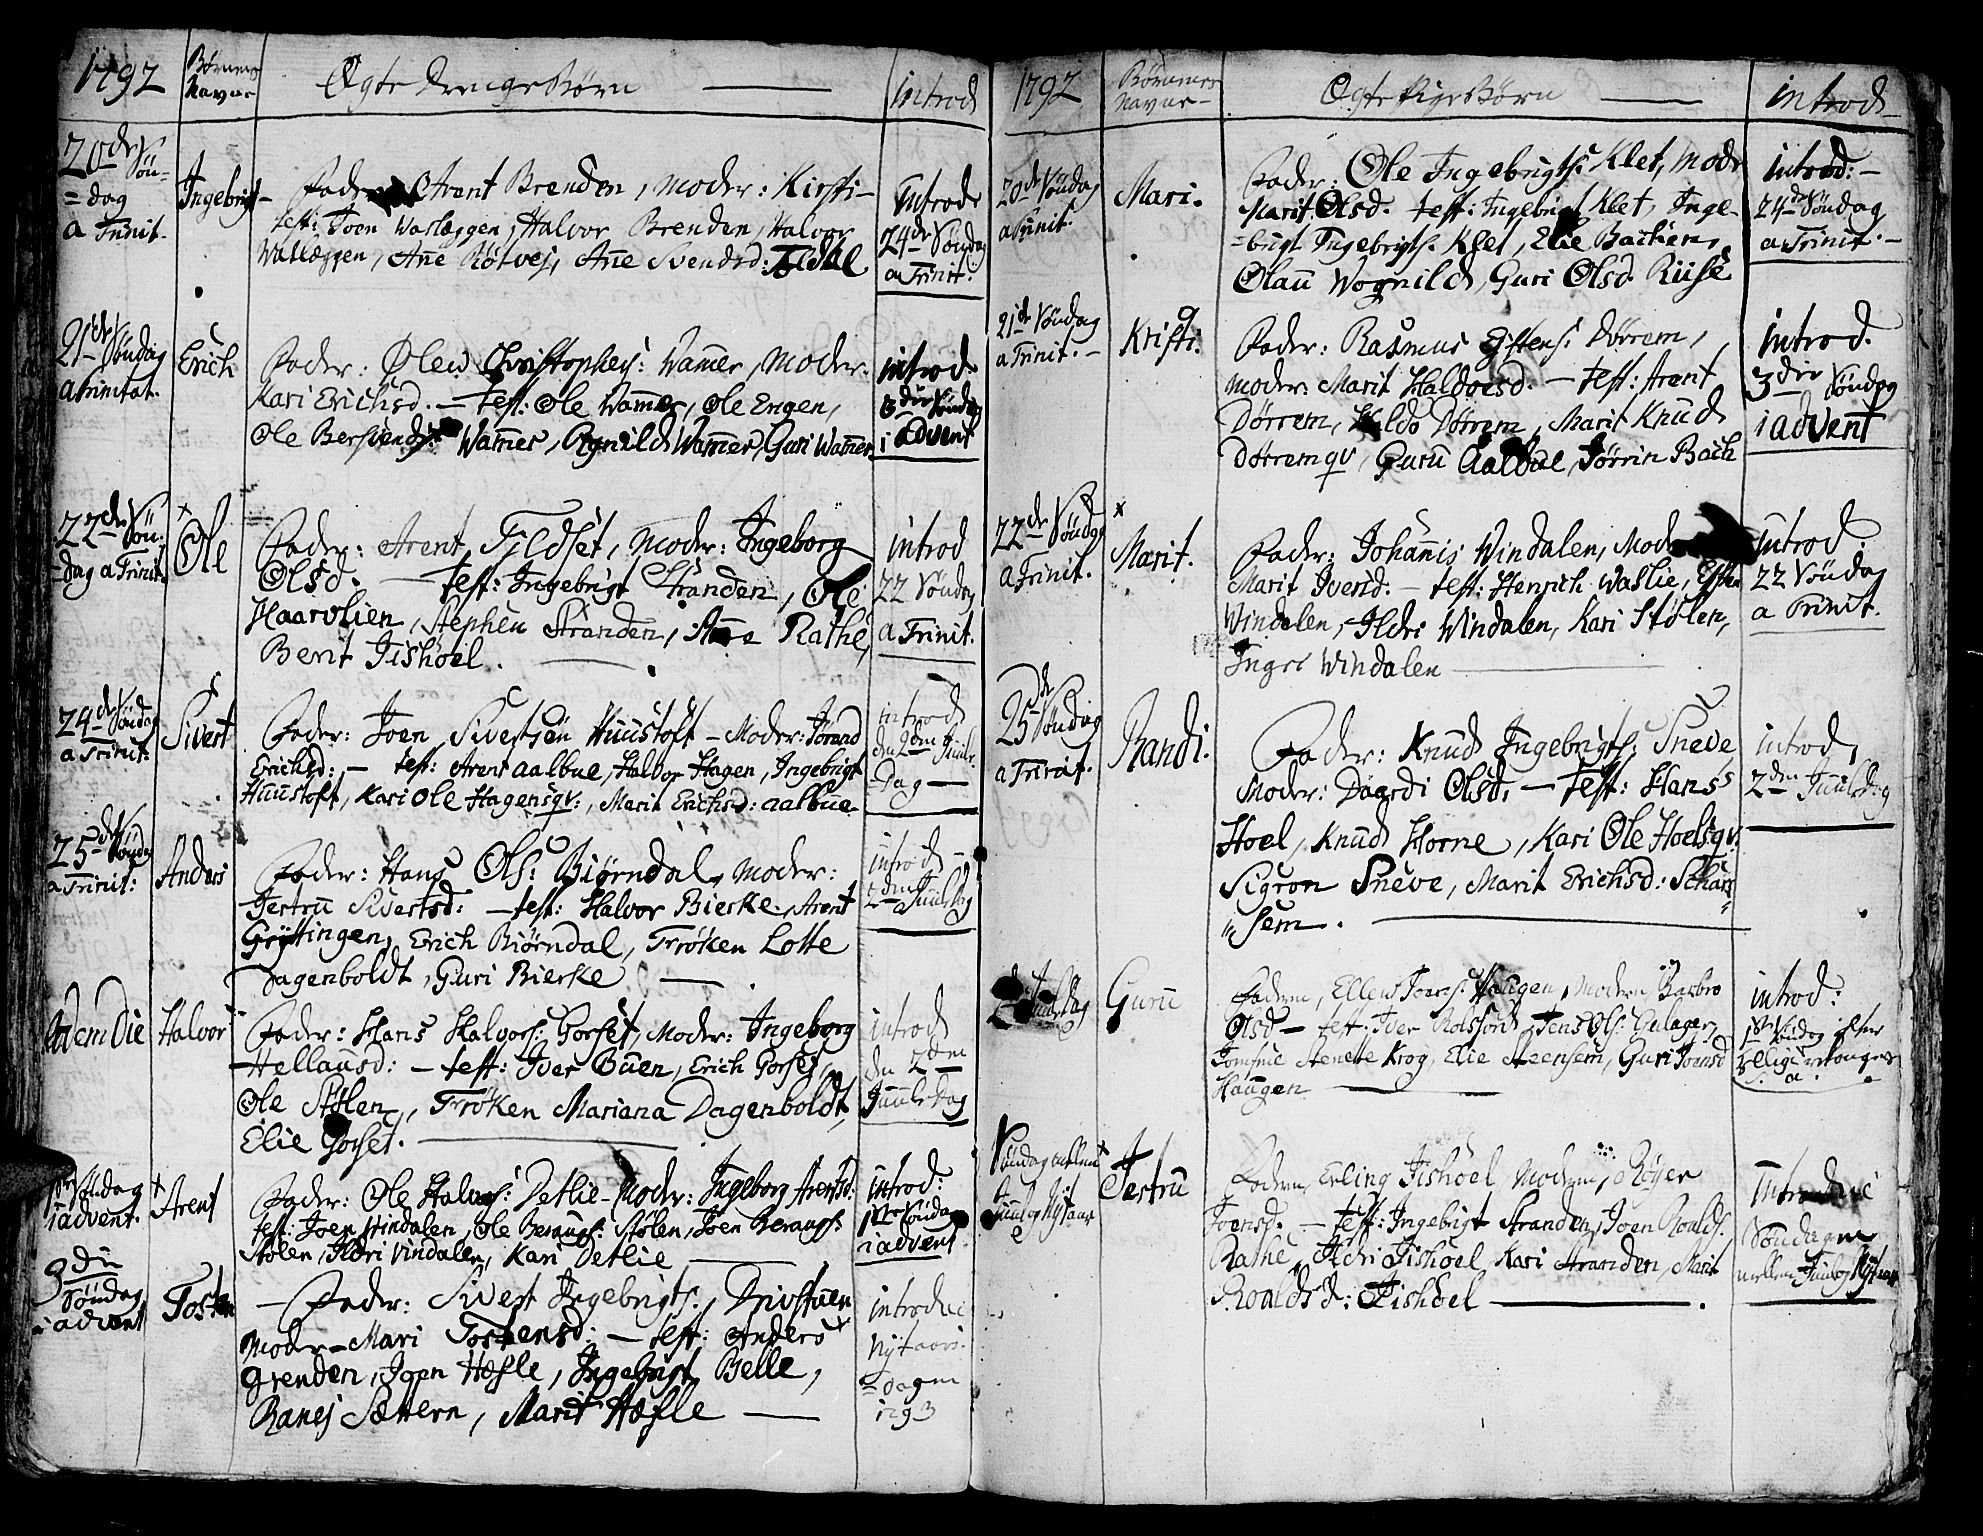 1792
Børnenes
Navne
Ægte Drengebørn
introd
20de Søn-
=dag
a Trinit.
Ingebrigt
Fader Arent Brenden, Moder: Kirsti
test: Joen Waslæggen, Halvor Brenden, Halvor
Waslæggen, Ane Røtvej, Ane Svendsd: Foldal
introd
24de Søndag
a Trinit.
21de Søndag
a Trinitat.
Erich
Fader: Ølew Christophers: Wamer, Moder:
Kari Erichsd. — test: Ole Wamer, Ole Engen,
Ole Bersvends: Wamer, Rgnild Wamer, Guri Wamer
introd
3die Søndag
i advent
22de Søn-
=dag a Trinit.
Ole
Fader: Arent Tjeldset, Moder: Ingeborg
Olsd. — test: Ingebrigt Stranden, Ole
Haarolien, Stephen Stranden, Rathe,
Berit Jishoel.
introd
22 Søndag
a Trinit.
24de Søndag
a Trinit.
Sivert
Fader: Joen Sivertsen Huustoft — Moder: Jørand
Erichsd: — test: Arent aalbue, Halvor Hagen, Ingebrigt
Huustoft, Kari Ole Hagensqv:, Marit Erichsd: aalbue
introd
den 2den Juule
Dag —
25de Søndag
a Trinit:
Anders
Fader: Hans Ols: Biørndal, Moder:
Jertru Sivertsd: — test: Halvor Bierke, Arent
Gryttingen, Erich Biørndal, Frøken Lotte
Dagenboldt, Guri Bierke —
introd —
2den Juuldag
Adem Die
Halvor
Fader: Hans Halvors: Gorset, Moder: Ingeborg
Hellausd: — test: Iver Buen, Erich Gorset,
Ole Stølen, Frøken Mariana Dagenboldt,
Elie Gorset. —
introd
den 2den
Juule Dag
1ste Søndag
i advent.
Arent
Fader: Ole Halvors: Detlie — Moder: Ingeborg Arentsd:
test: Joen Vindalen, Ole Beraugs: Stølen, Joen Beraugs:
Stølen, Ildri Vindalen, Kari Detlie —
introd:
1ste Søndag
i advent
3die
Søndag
i advent
Tosten
— Fader: Sivert Ingebrigts. Drivstuen
Moder — Mari Tostensd: — test: Anders
Grenden, Joen Hæfle, Ingebrigt Belle,
Ranej Sættern, Marit Hæfle —
introduc
Nytaars-
=dagen
1793
1792
Børnenes
Navne —
Ægte Pigebørn —
introd
20de Søndag
a Trinit.
Mari.
Fader: Ole Ingebrigts: Klet, Moder
Marit Olsd. test: Ingebrigt Klet, Inge-
=brigt Ingebrigts: Klet, Elie Bachen,
Olau Wognild, Guri Olsd. Riise
introd: —
24de Søndag
a Trinit. —
21de Søndag
a Trinit. —
Kristi.
Fader: Rasmus Estens: Dørrem,
moder: Marit Haldoesd. — test: Arent
Dørrem, Haldo Dørrem, Marit Knud
Dørremqv, Guru Aalbue, Jørrin Bach
introd.
3die Søndag
i advent
22de Søndag
a Trinit.
Marit.
Fader: Johanis Windalen, Moder
Marit Iversd. — test: Henrich Waslie, Esten
Windalen, Ildri Windalen, Kari Stølen,
Inger Windalen —
introd.
22 Søndag
a Trinit.
25de Søndag
a Trinit.
Randi.
Fader: Knud Ingebrigts: Sneve,
Moder: Dordi Olsd, — test: Hans
Hoel, Knud Horne, Kari Ole Hoelsqv:
Sigron Sneve, Marit Erichsd: Schar
=sem. —
introd,
2den Juuledag
Juuldag
Guru
Faderen, Ellew Joens: Haugen, Moderen, Barbro
Olsd — test: Iver Rolfsord, Jens Ols: Gulager,
Jomfrue Anette Krog, Elie Arensem, Guri Joensd
Haugen —
introd:
1ste Søndag efter
Hellige 3 Konger
Søndag mellem
Juul og Nytaar
Jertru
Faderen, Erling Jishoel, Moderen, Røyer
Joensd. — test: Ingebrigt Stranden, Joen Roalds:
Rathe, Ildri Jishoel, Kari Stranden, Marit
Roaldsd: Jishoel —
Introduc
Søndagen
mellem Juul og Nytaar